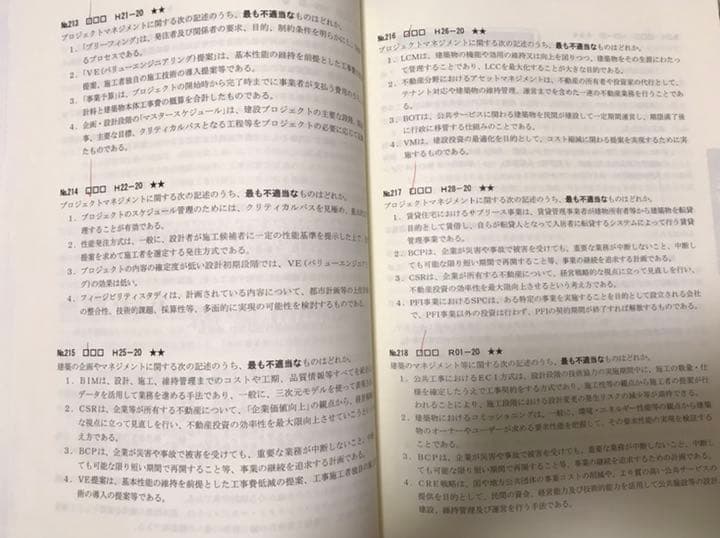 №213 □□□ H21-20 ★★
プロジェクトマネジメントに関する次の記述のうち、最も不適当なものはどれか。
1. 「ブリーフィング」は、発注者及び関係者の要求、目的、制約条件を明らかに
るプロセスである。
2. 「VE(バリューエンジニアリング)提案」は、基本性能の維持を前提とした工事費
提案、施工者独自の施工技術の導入提案等である。
3. 「事業予算」は、プロジェクトの開始時から完了時までに事業者が支払う費用のうち、
計料と建築物本体工事費の概算を合計したものである。
4. 企画・設計段階の「マスタースケジュール」は、建設プロジェクトの主要な段階、
事、主要な目標、クリティカルパスとなる工程等をプロジェクトの必要に応じて
たものである。
№214 □□□ H22-20 ★★
プロジェクトマネジメントに関する次の記述のうち、最も不適当なものはどれか。
1. プロジェクトのスケジュール管理のためには、クリティカルパスを見極め、
理することが有効である。
2. 性能発注方式は、一般に、設計者が施工候補者に一定の性能基準を提示した上で、
提案を求めて施工者を選定する発注方式である。
3. プロジェクトの内容の確定度が低い設計初期段階では、VE(バリューエンジニア
の効果は低い。
4. フィージビリティスタディは、計画されている内容について、都市計画等の上位
の整合性、技術的課題、採算性等、多面的に実現の可能性を検討するものである。
№215 □□□ H25-20 ★★
建築の企画やマネジメントに関する次の記述のうち、最も不適当なものはどれか。
1. BIMは、設計、施工、維持管理までのコストや工期、品質情報等すべてを
データを活用して業務を進める手法であり、一般に、三次元モデルを使って
2. CSRは、企業等が所有する不動産について、「企業価値向上」の観点から、経
な視点に立って見直しを行い、不動産投資の効率性を最大限向上させていこうという
え方である。
3. BCPは、企業が災害や事故で被害を受けても、重要な業務が中断しないこと、中断
ても可能な限り短い期間で再開すること等、事業の継続を追求する計画である。
4. VE提案は、基本性能の維持を前提とした工事費低減の提案、工事施工者独自の施
術の導入の提案等である。
№216 □□□ H26-20 ★★
プロジェクトマネジメントに関する次の記述のうち、最も不適当なものはどれか。
1. LCMは、建築物の機能や効用の維持又は向上を図りつつ、建築物をその生涯にわた
って管理することであり、LCCを最大化することが大きな目的である。
2. 不動産分野におけるアセットマネジメントは、不動産の所有者や投資家の代行として、
テナント対応や建築物の維持管理、運営までを含めた一連の不動産業務を行うことであ
る。
3. BOTは、公共サービスに関わる建築物を民間が建設して一定期間運営し、期限満了後
に行政に移管する仕組みのことである。
4. VMは、建設投資の最適化を目的として、コスト縮減に関わる提案を実現するために実
施するものである。
№217 □□□ H28-20 ★★
プロジェクトマネジメントに関する次の記述のうち、最も不適当なものはどれか。
1. 賃貸住宅におけるサブリース事業は、賃貸管理事業者が建物所有者等から建築物を転貸
目的として賃借し、自らが転貸人となって入居者に転貸するシステムによって行う賃貸
管理事業である。
2. BCPは、企業が災害や事故で被害を受けても、重要な業務が中断しないこと、中断し
ても可能な限り短い期間で再開すること等、事業の継続を追求する計画である。
3. CSRは、企業が所有する不動産について、経営戦略的な視点に立って見直しを行い、
不動産投資の効率性を最大限向上させるという考え方である。
4. PFI事業におけるSPCは、ある特定の事業を実施することを目的として設立される会社
で、PFI事業以外の投資は行わず、PFIの契約期間が終了すれば解散するものである。
№218 □□□ R01-20 ★★
建築のマネジメント等に関する次の記述のうち、最も不適当なものはどれか。
1. 公共工事におけるECI方式は、設計段階の技術協力の実施期間中に、施工の数量・仕
様を確定したうえで工事契約をする方式であり、施工性等の観点から施工者の提案が行
われることにより、施工段階における設計変更の発生リスクの減少等が期待できる。
2. 建築物におけるコミッショニングは、一般に、環境・エネルギー性能等の観点から建築
物のオーナーやユーザーが求める要求性能を把握して、その要求性能の実現を検証する
ことである。
3. BCPは、企業が災害や事故で被害を受けても、重要な業務が中断しないこと、中断し
ても可能な限り短い期間で再開すること等、事業の継続を追求するための計画である。
4. CRE戦略は、国や地方公共団体の事業コストの削減や、より質の高い公共サービスの
提供を目的として、民間の資金、経営能力及び技術的能力を活用して公共施設等の設計、
建設、維持管理及び運営を行う手法である。